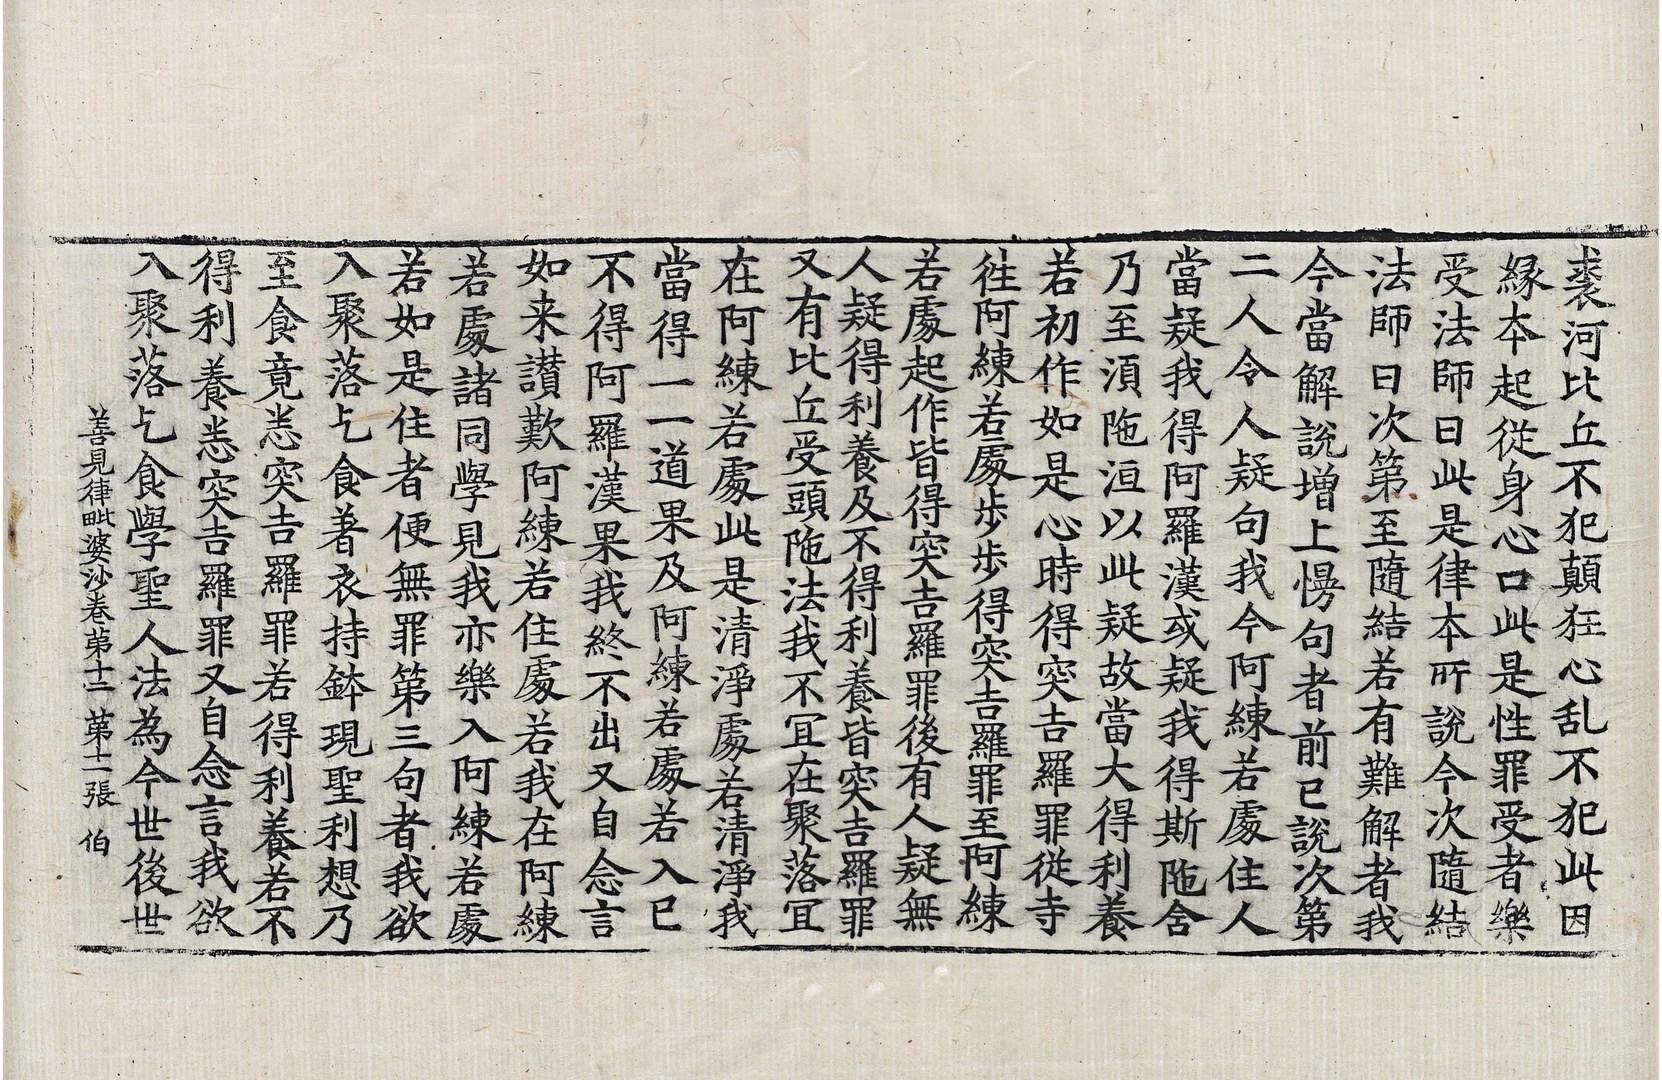 裘河比丘不犯顛狂心乱不犯此因
縁本起從身心口此是性罪受者樂
受法師曰此是律本所說今次隨結
法師曰次第至隨結若有難解者我
今當解說增上慢句者前已說次第
二人令人疑句我今阿練若處住人
當疑我得阿羅漢或疑我得斯陁舍
乃至湏陁洹以此疑故當大得利養
若初作如是心時得突吉羅罪從寺
徃阿練若處歩歩得突吉羅罪至阿練
若處起作皆得突吉羅罪後有人疑無
人疑得利養及不得利養皆突吉羅罪
又有比丘受頭陁法我不宜在聚落宜
在阿練若處此是清淨處若清淨我
當得一一道果及阿練若處若入已
不得阿羅漢果我終不出又自念言
如来讃歎阿練若住處若我在阿練
若處諸同學見我亦樂入阿練若處
若如是住者便無罪第三句者我欲
入聚落乞食著衣持鉢現聖利想乃
至食竟恙突吉羅罪若得利養若不
得利養恙突吉羅罪又自念言我欲
入聚落乞食學聖人法為今世後世
善見律毗婆沙卷苐十二 苐十二張 伯